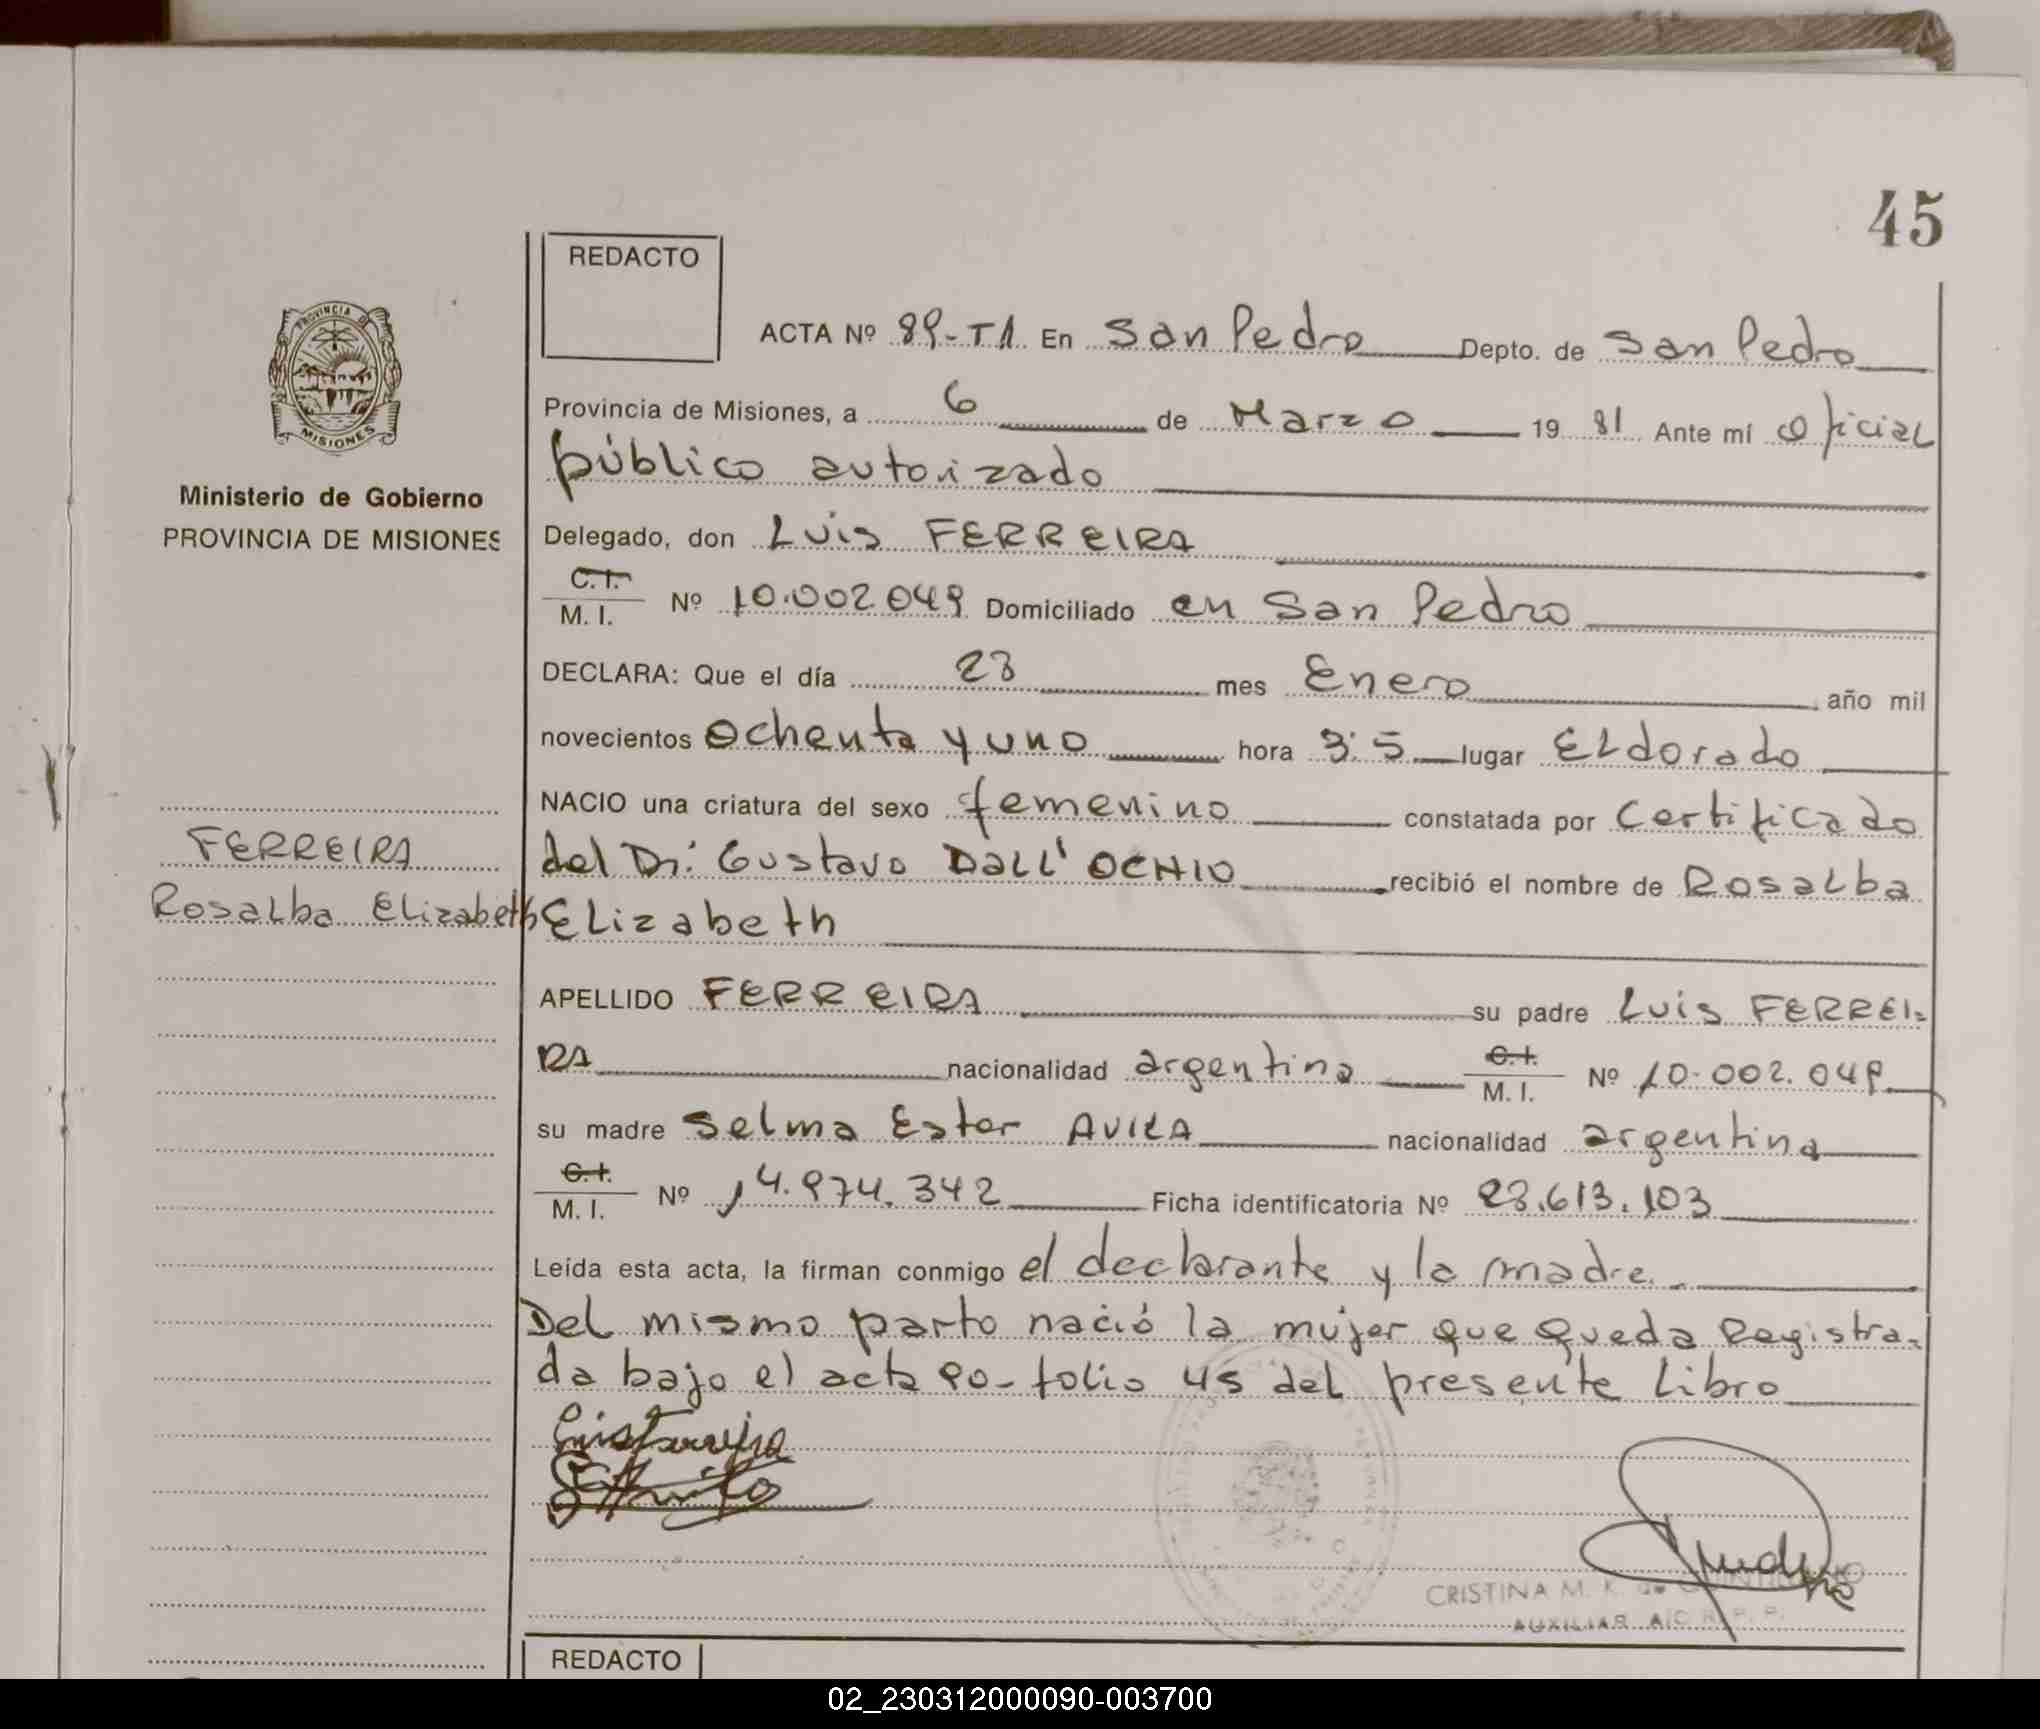 45
REDACTO
PROVINCIA DE
MISIONES
Ministerio de Gobierno
PROVINCIA DE MISIONES
ACTA Nº 89-T1. En San Pedro Depto. de San Pedro
Provincia de Misiones, a 6 de Marzo 1981 Ante mí Oficial
público autorizado
Delegado, don Luis FERREIRA
C. I.
M. I. Nº 10.002.049 Domiciliado en San Pedro
DECLARA: Que el día 23 mes Enero año mil
novecientos ochenta y uno hora 3:5 lugar ELdorado
NACIO una criatura del sexo femenino constatada por Certificado
del Dr. Gustavo DALL' OCHIO recibió el nombre de Rosalba
Elizabeth
FERREIRA
Rosalba Elizabeth
APELLIDO FERREIRA su padre Luis FERREI-
RA nacionalidad argentina C. I. M. I. Nº 10.002.049
su madre Selma Ester AVILA nacionalidad argentina
C. I.
M. I. Nº 14.974.342 Ficha identificatoria Nº 28.613.103
Leída esta acta, la firman conmigo el declarante y la madre.
Del mismo parto nació la mujer que queda Registra-
da bajo el acta 90- folio 45 del presente Libro
CRISTINA M. K. de
AUXILIAR
REDACTO
02_230312000090-003700